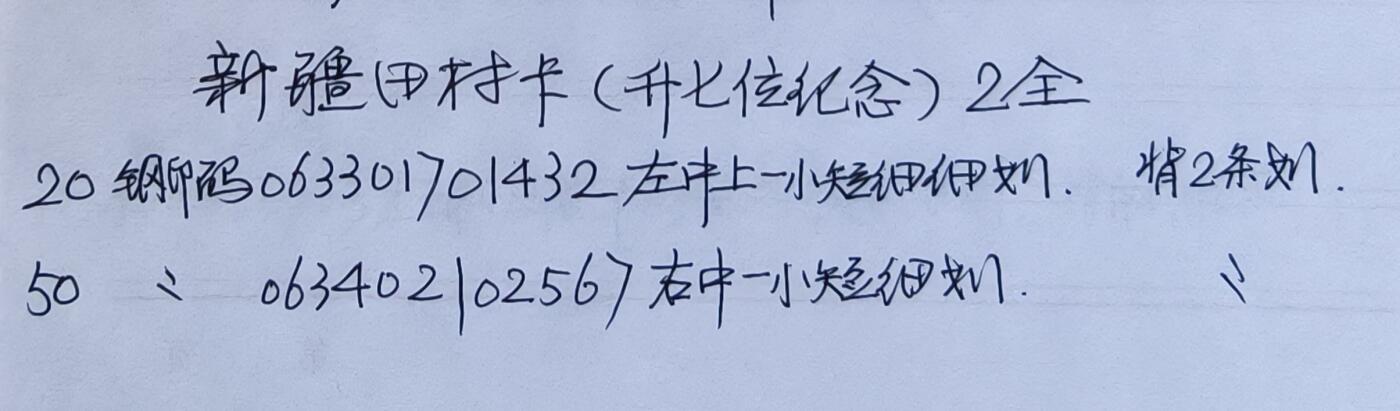 新疆田村卡（升七位纪念）2全
20 钢印码063301701432左中上一小短细细划. 背2条划.
50 〃 063402102567右中一小短细划. 〃